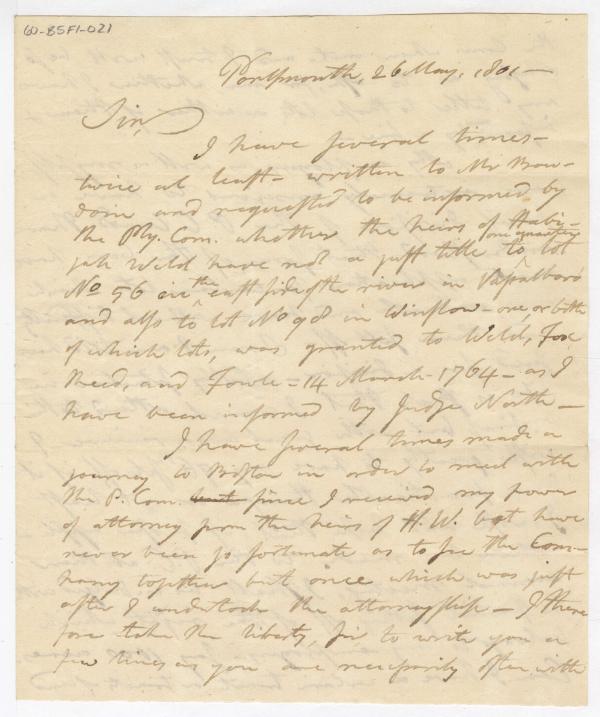 60-85F1-021
Portsmouth, 26 May, 1801—
Sir,
I have several times—
twice at least— written to Mr Bow-
doin and requested to be informed by
the Ply. Com. whether the heirs of Habi-
jah Weld have not a just title to one quarter lot
No 56 in the east side of the river in Vassalboro
and also to lot No 98 in Winslow—one, or both
of which lots, was granted to Weld, Fox
Reed, and Fowle—14 March—1764—as I
have been informed by Judge North—
I have several times made a
journey to Boston in order to meet with
the P. Com. since I received my power
of attorney from the heirs of H. W. but have
never been so fortunate as to see the Com-
pany together but once which was just
after I undertook the attorneyship—I there
fore take the liberty, Sir to write you a
few lines as you are necessarily often with